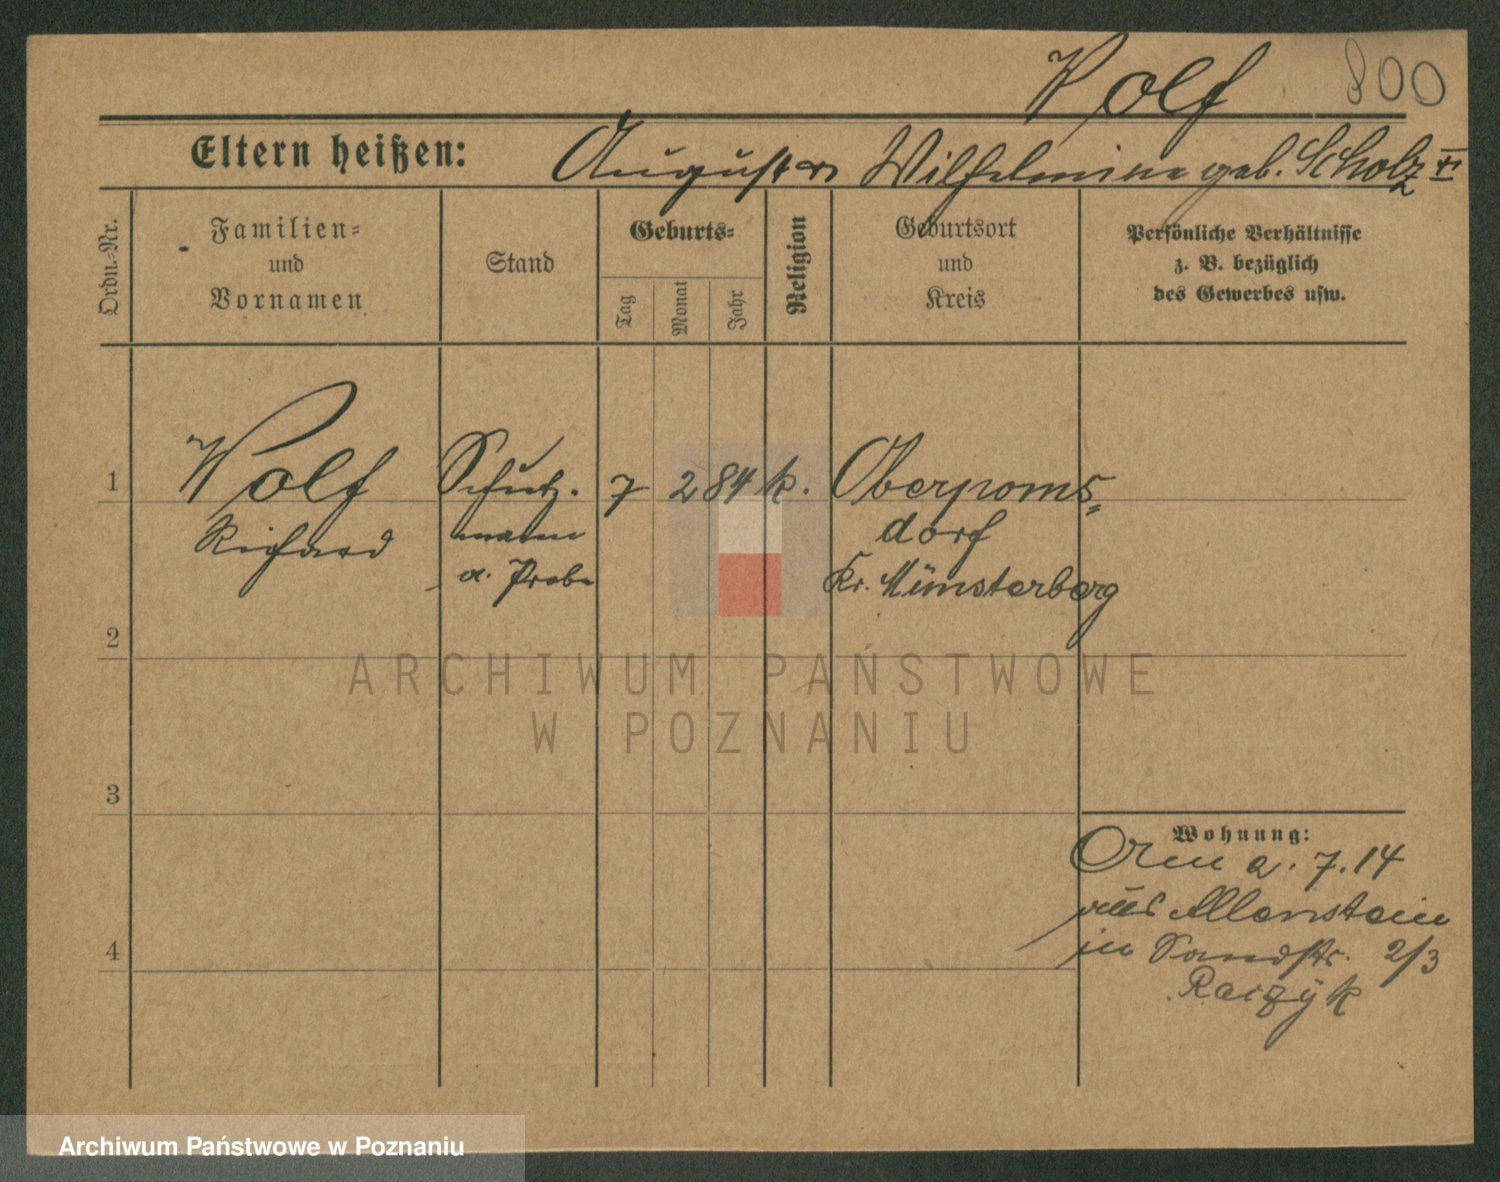 Wolf 800
Eltern heißen: August u Wilhelmine geb. Scholz VI
Ordn.-Nr.
Familien-
und
Vornamen
Stand
Geburts-
Tag
Monat
Jahr
Religion
Geburtsort
und
Kreis
Persönliche Verhältnisse
z. B. bezüglich
des Gewerbes usw.
1 Wolf Schutz- 7 2 84 k. Oberpoms=
Richard mann dorf
a. Probe Kr. Münsterberg
2
ARCHIWUM PAŃSTWOWE
W POZNANIU
3
Wohnung:
2.7.14
aus Allenstein
4
in Sandstr. 2/3
Raczyk
Archiwum Państwowe w Poznaniu